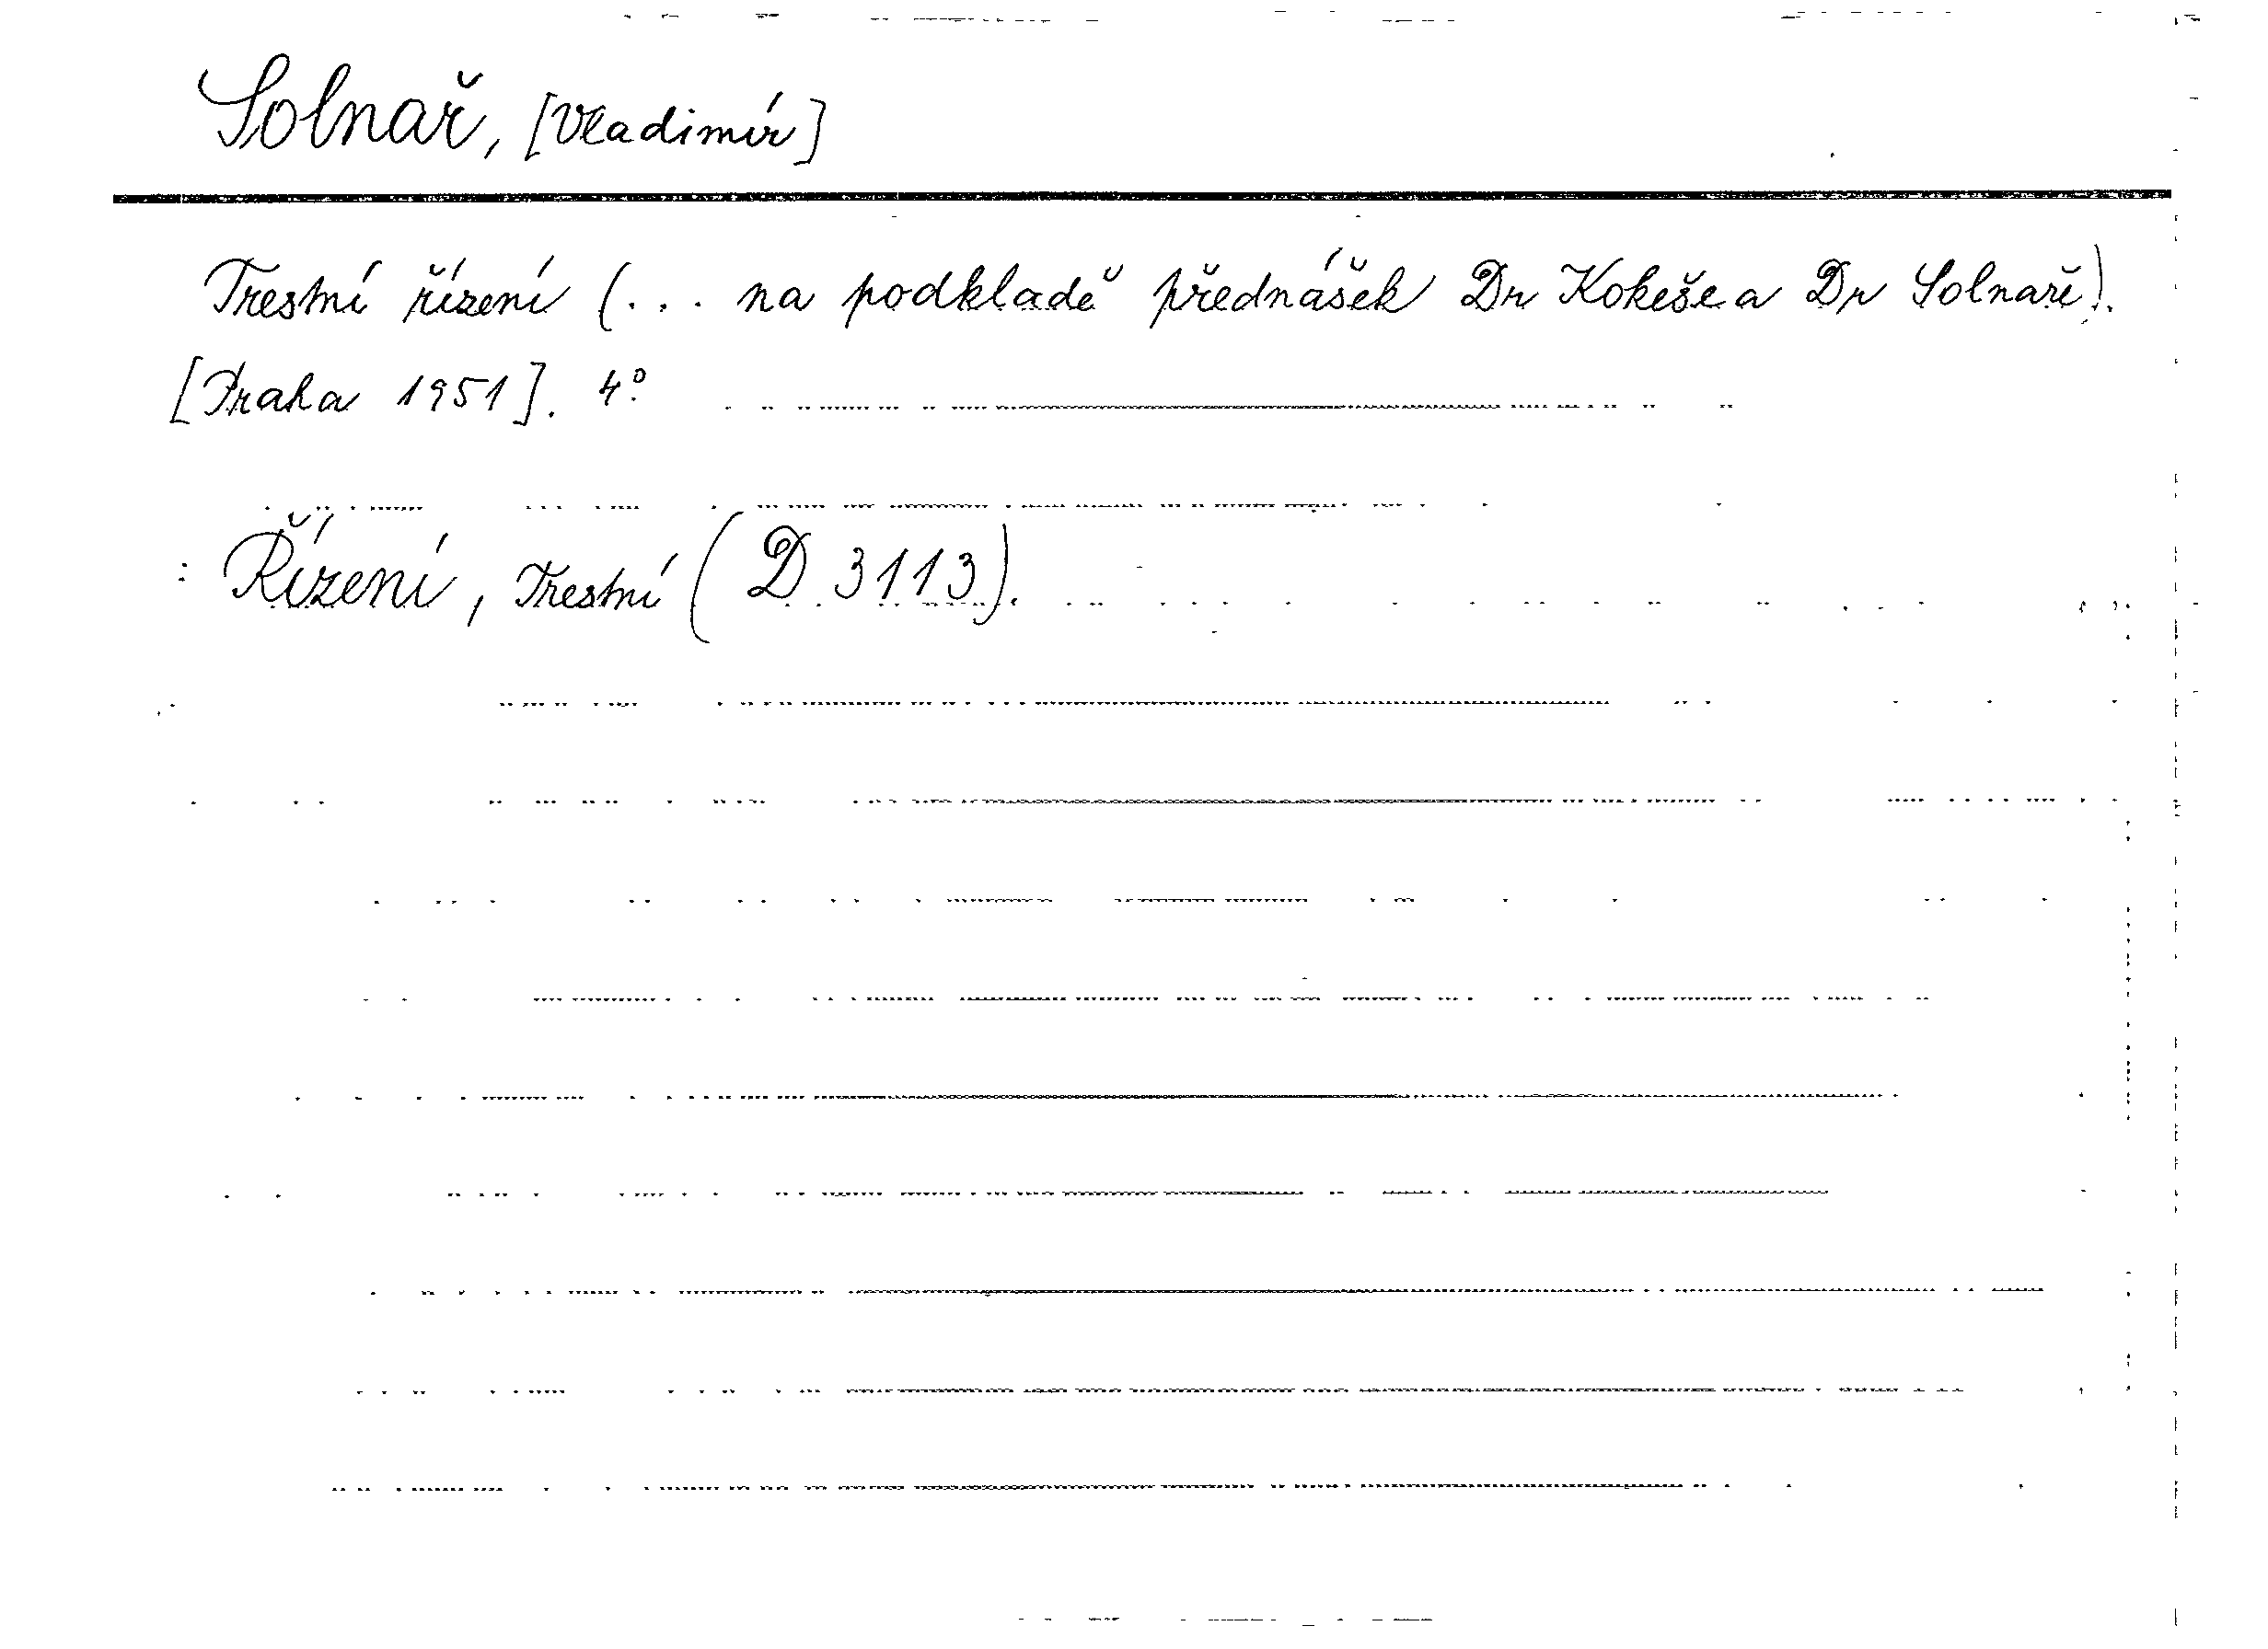 Solnař, [Vladimír]
Trestní řízení (... na podkladě přednášek Dr Kokeše a Dr Solnaře).
[Praha 1951]. 4°.
: Řízení, Trestní (D 3113).